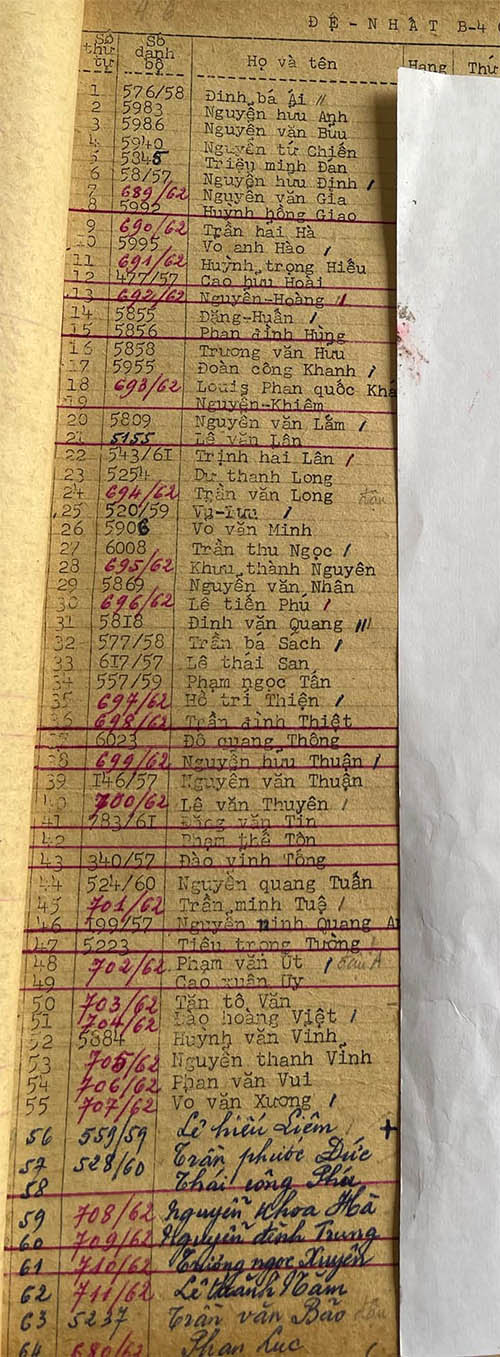 ĐỆ-NHẤT B-4
Số thứ tự Số danh bộ Họ và tên Hạng Thứ
1 576/58 Đinh bá Ái //
2 5983 Nguyễn hưu Anh
3 5986 Nguyễn văn Bưu
4 5940 Nguyễn tứ Chiến
5 5845 Triệu minh Đán
6 58/57 Nguyễn hưu Định /
7 689/62 Nguyễn văn Gia
8 5992 Huỳnh hồng Giao
9 690/62 Trần hải Hà
10 5995 Vo anh Hào /
11 691/62 Huỳnh trọng Hiếu
12 477/57 Cao hưu Hoài
13 692/62 Nguyễn-Hoàng //
14 5855 Đặng-Huấn /
15 5856 Phan đình Hùng
16 5858 Trương văn Hưu
17 5955 Đoàn công Khanh /
18 693/62 Louis Phan quốc Khá
19 Nguyễn-Khiêm
20 5809 Nguyễn văn Lắm /
21 5155 Lê văn Lân
22 543/61 Trịnh hai Lân /
23 5254 Dư thanh Long
24 694/62 Trần văn Long
25 520/59 Vũ-Lưu /
26 5906 Vo văn Minh
27 6008 Trần thu Ngọc /
28 695/62 Khưu thành Nguyên
29 5869 Nguyễn văn Nhân
30 696/62 Lê tiến Phú /
31 5818 Đinh văn Quang ///
32 577/58 Trần bá Sách /
33 617/57 Lê thái San
34 557/59 Phạm ngọc Tấn
35 697/62 Hồ trí Thiện /
36 698/62 Trần đình Thiệt
37 6023 Đô quang Thông
38 699/62 Nguyễn hưu Thuận /
39 146/57 Nguyễn văn Thuận
40 700/62 Lê văn Thuyên /
41 783/61 Đặng văn Tín
42 Phạm thế Tôn
43 340/57 Đào vinh Tống
44 524/60 Nguyễn quang Tuấn
45 701/62 Trần minh Tuệ /
46 199/57 Nguyễn ninh Quang
47 5223 Tiêu trọng Tường
48 702/62 Phạm văn Út /
49 Cao xuân Uy
50 703/62 Tặn tô Văn
51 704/62 Đào hoàng Việt /
52 5884 Huỳnh văn Vinh
53 705/62 Nguyễn thanh Vinh
54 706/62 Phan văn Vui
55 707/62 Vo văn Xương /
56 559/59 Lê hiếu Liêm / +
57 528/60 Trần phước Đức
58 Thái công Phú
59 708/62 Nguyễn Khoa Hà
60 709/62 Nguyễn đình Trung
61 710/62 Trương ngọc Xuyên
62 711/62 Lê thành Năm
63 5237 Trần văn Bão
64 680/62 Phan Lục /